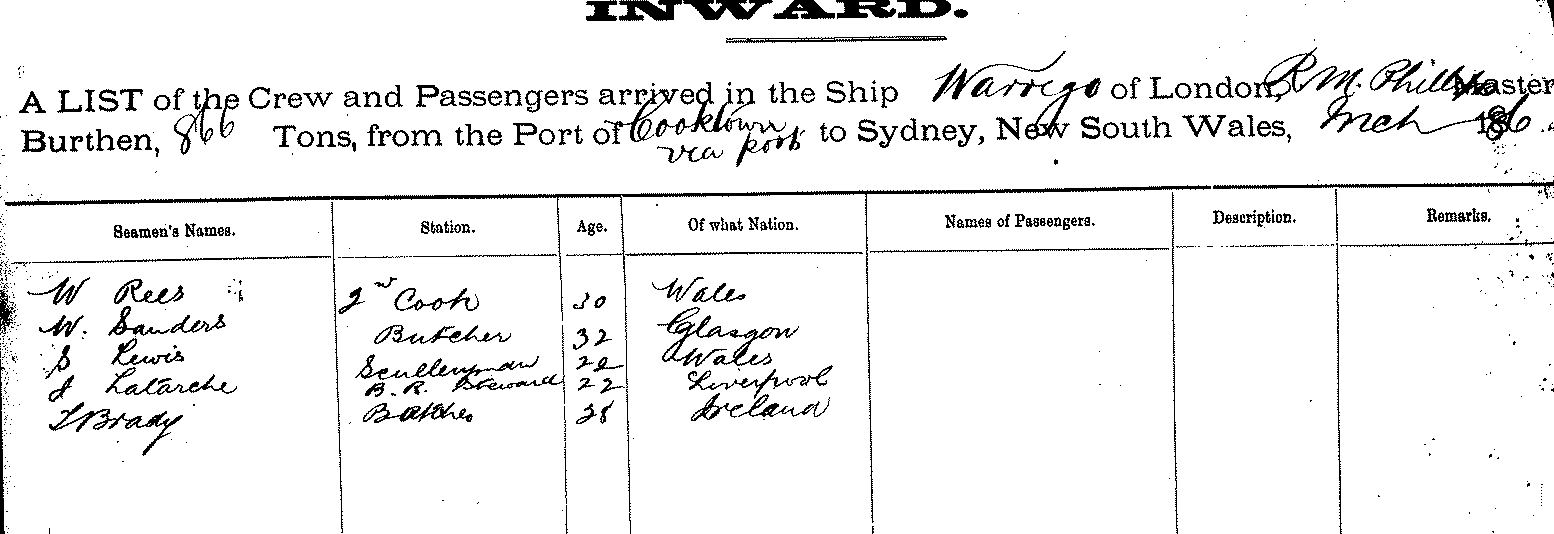 INWARD.
A LIST of the Crew and Passengers arrived in the Ship Warrego of London, R M. Phillips Master
Burthen, 866 Tons, from the Port of Cooktown to Sydney, New South Wales, 186
via ports
Seamen's Names. Station. Age. Of what Nation. Names of Passengers. Description. Remarks.
W Rees 2nd Cook 30 Wales
W. Sanders Butcher 32 Glasgow
S Lewis Sculleryman 22 Wales
J Latarche B. R. Steward 22 Liverpool
T Brady Ireland